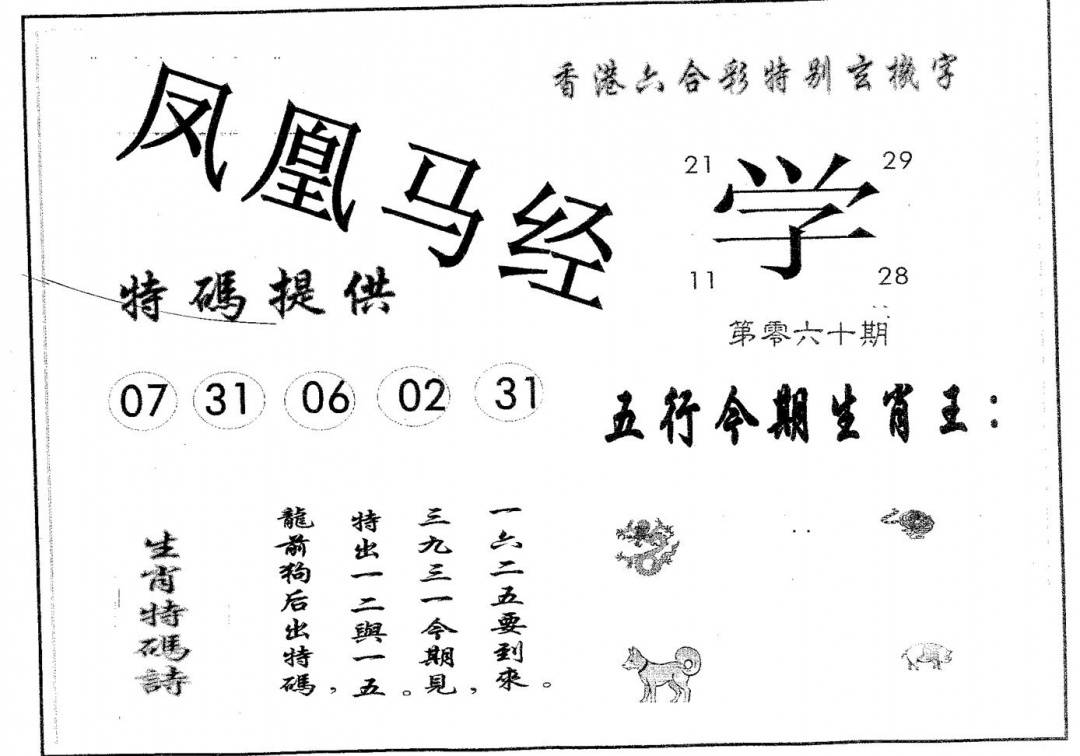 凤凰马经
香港六合彩特别玄機字
21
29
学
11
28
特碼提供
第零六十期
07 31 06 02 31
五行今期生肖王：
生肖特碼詩
龍前狗后出特碼，
特出一二與一五。
三九三一今期見，
一六二五要到來。